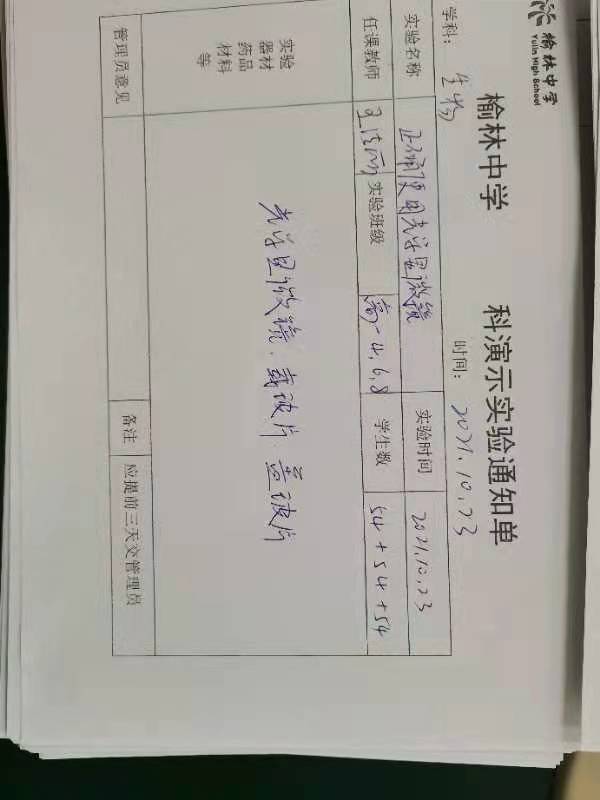 榆林中学
Yulin High School
榆林中学 科演示实验通知单
学科: 生物 时间: 2021.10.23
实验名称 正确使用光学显微镜 实验时间 2021.10.23
任课教师 实验班级 高一4,6,8 学生数 54+54+54
实验
器材
药品
材料
等
光学显微镜. 载玻片 盖玻片
管理员意见 备注 应提前三天交管理员